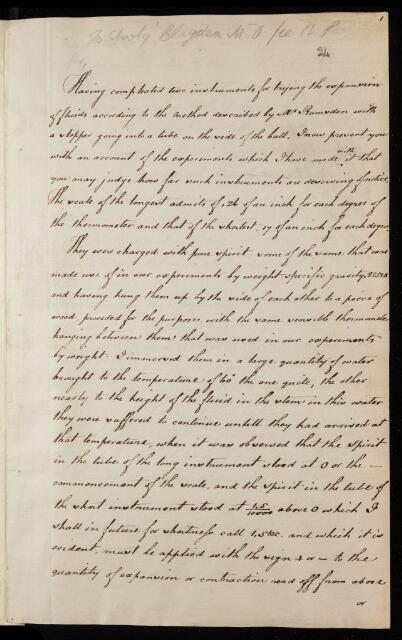 1
To Charles Blagden M.D. Sec R.S.
24
Having compleated two instruments for trying the expansion
of fluids according to the method described by Mr Ramsden with
a stopper going into a tube on the side of the ball, I now present you
with an account of the experiments which I have made with it that
you may judge how far such instruments are deserving of notice.
The scale of the longest admits of ,26 of an inch for each degree of
the thermometer and that of the shortest ,17 of an inch for each degree
They were charged with pure spirit some of the same that was
made use of in our experiments by weight specific gravity
and having hung them up by the side of each other to a piece of
wood provided for the purpose with the same sensible thermometer
hanging between them that was used in our experiments
by weight. I immersed them in a large quantity of water
brought to the temperature of 60° the one quite, the other
nearly to the height of the fluid in the stem in this water
they were suffered to continue untill they had arrived at
that temperature, when it was observed that the spirit
in the tube of the long instrument stood at 0 or the —
commencement of the scale, and the spirit in the tube of
the short instrument stood at above 0 which I
shall in future for shortness call 1,5 &c. and which it is
evident must be applied with the sign + or — to the
quantity of expansion or contraction read off from above
or